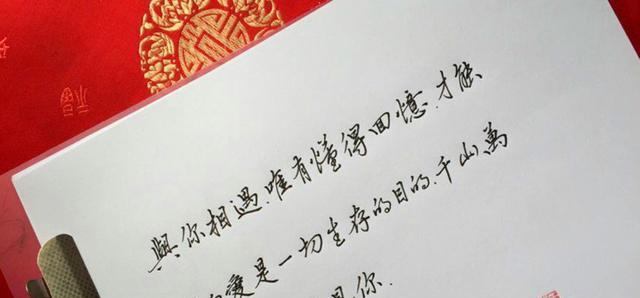 與你相遇.唯有懂得回憶.才能
愛是一切生存的目的.千山萬
是你.